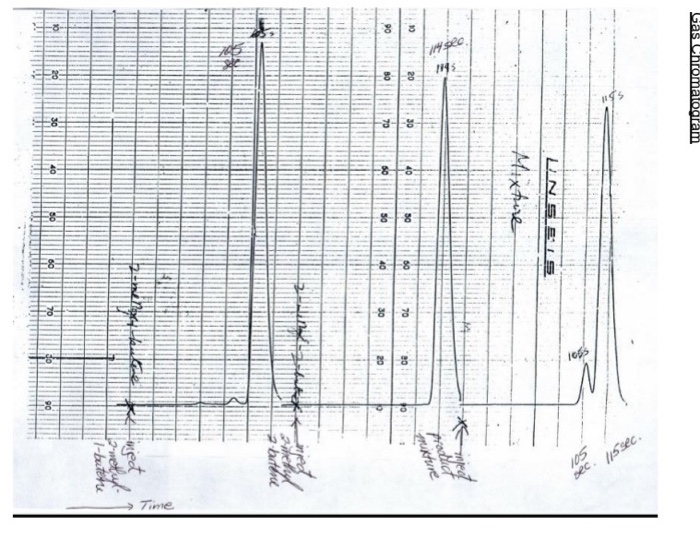 Gas Chromatogram
105s
105
sec
114 sec.
114s
115s
Mixture
LINSEIS
10 20 30 40 50 60 70 80 90
90 80 70 60 50 40 30 20 0
10 20 30 40 50 60 70 80 90
2-methyl-1-butene
2-methyl-2-butene
105s
inject
2-methyl-
1-butene
inject
2-methyl
2-butene
inject
product
mixture
105
sec.
115 sec.
Time